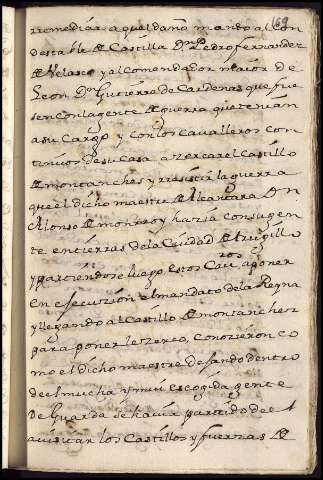 69
remediar aquel daño mando al con
destable de Castilla Dn Pedro fernandez
de Velasco y al comendador maior de
Leon Dn Gutierre de Cardenas que fue
sen con la gente de guerra que tenian
a su Cargo y con los cavalleros con
tinuos de su casa a zercar el Castillo
de montanches y rresistir la guerra
que el dicho maestre de Alcantara Dn
Alonso de monroy hazia con su gen
te en tierras de la Ciudad de trugillo
y partiendose luego estos Cavros a poner
en efecuzion el mandato de la Reyna
y llegando al Castillo de montanchez
para ponerle zerco, conozieron co
mo el dicho maestre dejando dentro
del mucha y mui escogida gente
de Guarda se havia partido de el A
avisitar los Castillos y fuerzas de